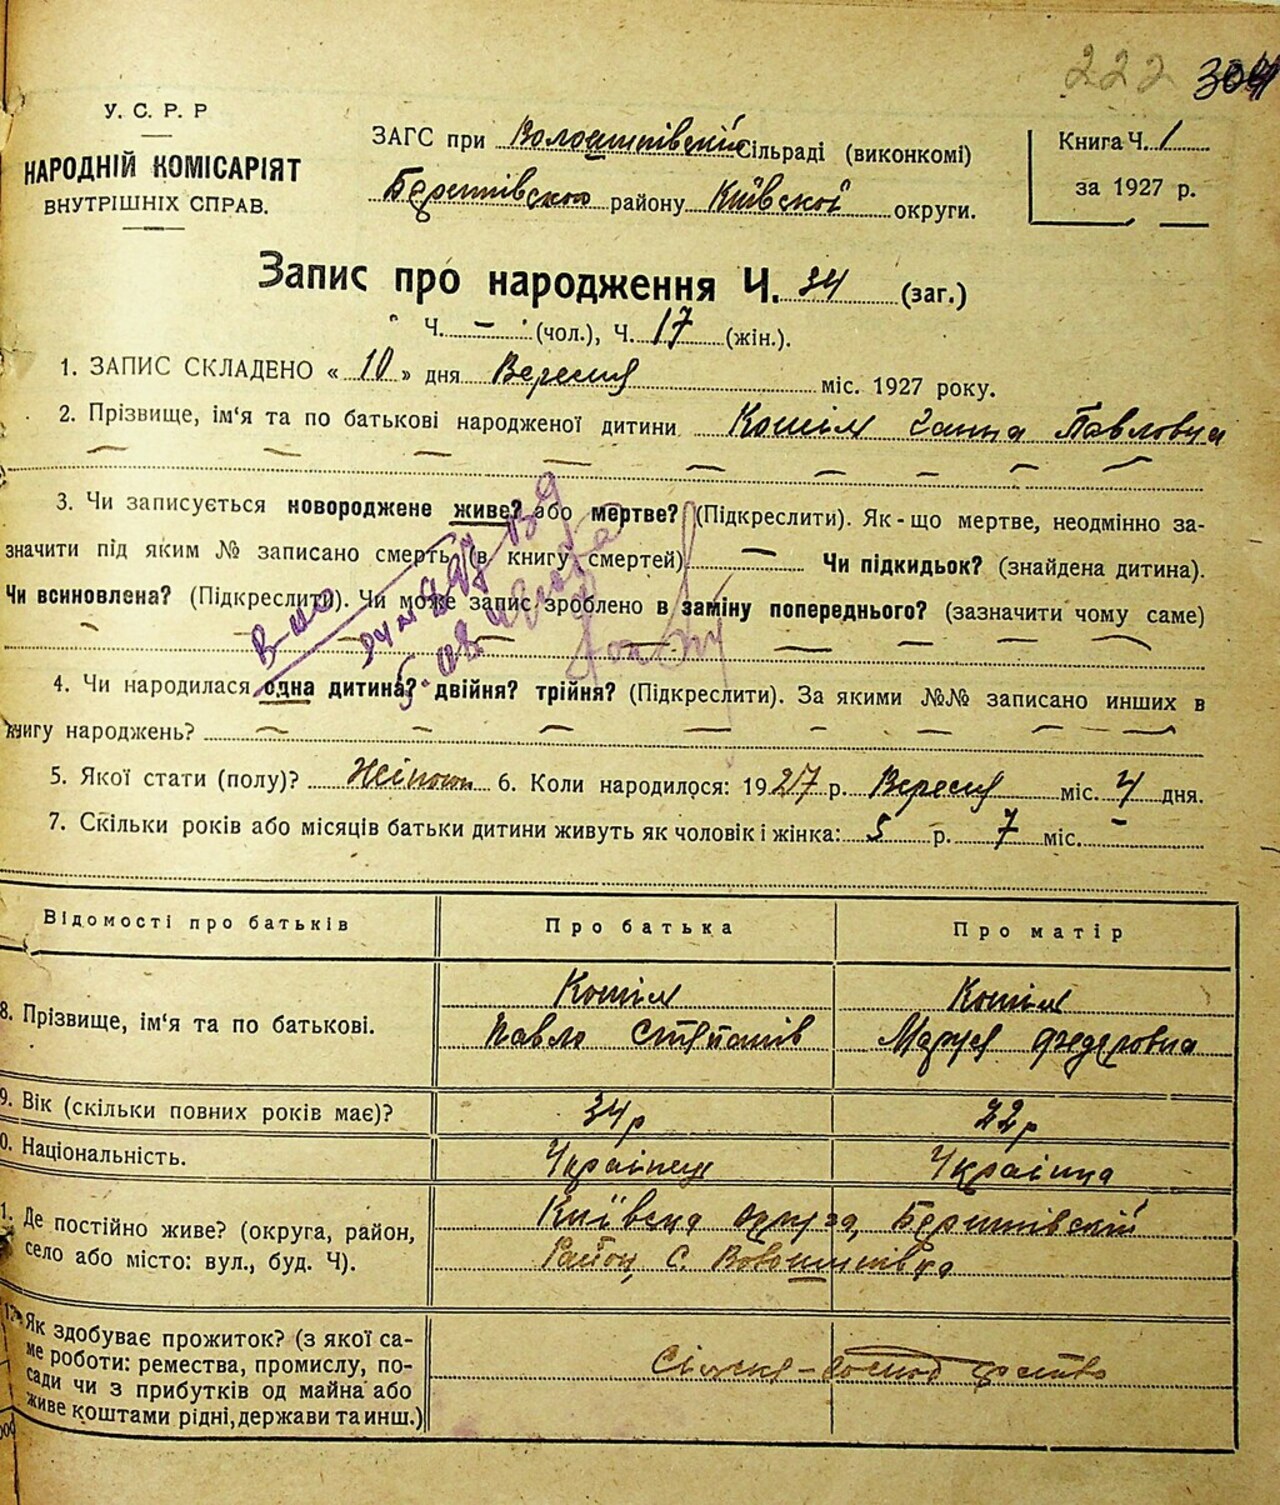 222 304
У. С. Р. Р
НАРОДНІЙ КОМІСАРІЯТ
ВНУТРІШНІХ СПРАВ.
ЗАГС при Волошинівській Сільраді (виконкомі)
Баришівського району Київської округи.
Книга Ч. 1
за 1927 р.
Запис про народження Ч. 34 (заг.)
Ч. – (чол.), Ч. 17 (жін.).
1. ЗАПИС СКЛАДЕНО « 10 » дня Вересня міс. 1927 року.
2. Прізвище, ім‘я та по батькові народженої дитини Ганна Павловна
3. Чи записується новороджене живе? або мертве? (Підкреслити). Як-що мертве, неодмінно за-
значити під яким № записано смерть (в книгу смертей) — Чи підкидьок? (знайдена дитина).
Чи всиновлена? (Підкреслити). Чи може запис зроблено в заміну попереднього? (зазначити чому саме)
4. Чи народилася одна дитина? двійня? трійня? (Підкреслити). За якими №№ записано инших в
книгу народжень?
5. Якої стати (полу)? 6. Коли народилося: 1927 р. Вересня міс. 4 дня.
7. Скільки років або місяців батьки дитини живуть як чоловік і жінка: 5 р. 7 міс. –
Відомості про батьків Про батька Про матір
8. Прізвище, ім‘я та по батькові.
Павло Степанів Маруся Федоровна
9. Вік (скільки повних років має)? 34 р 22 р
0. Національність. Українец Українка
1. Де постійно живе? (округа, район,
село або місто: вул., буд. Ч).
Київська округа, Баришівській
Район, С. Волошинівка
12. Як здобуває прожиток? (з якої са-
ме роботи: ремества, промислу, по-
сади чи з прибутків од майна або
живе коштами рідні, держави та инш.)